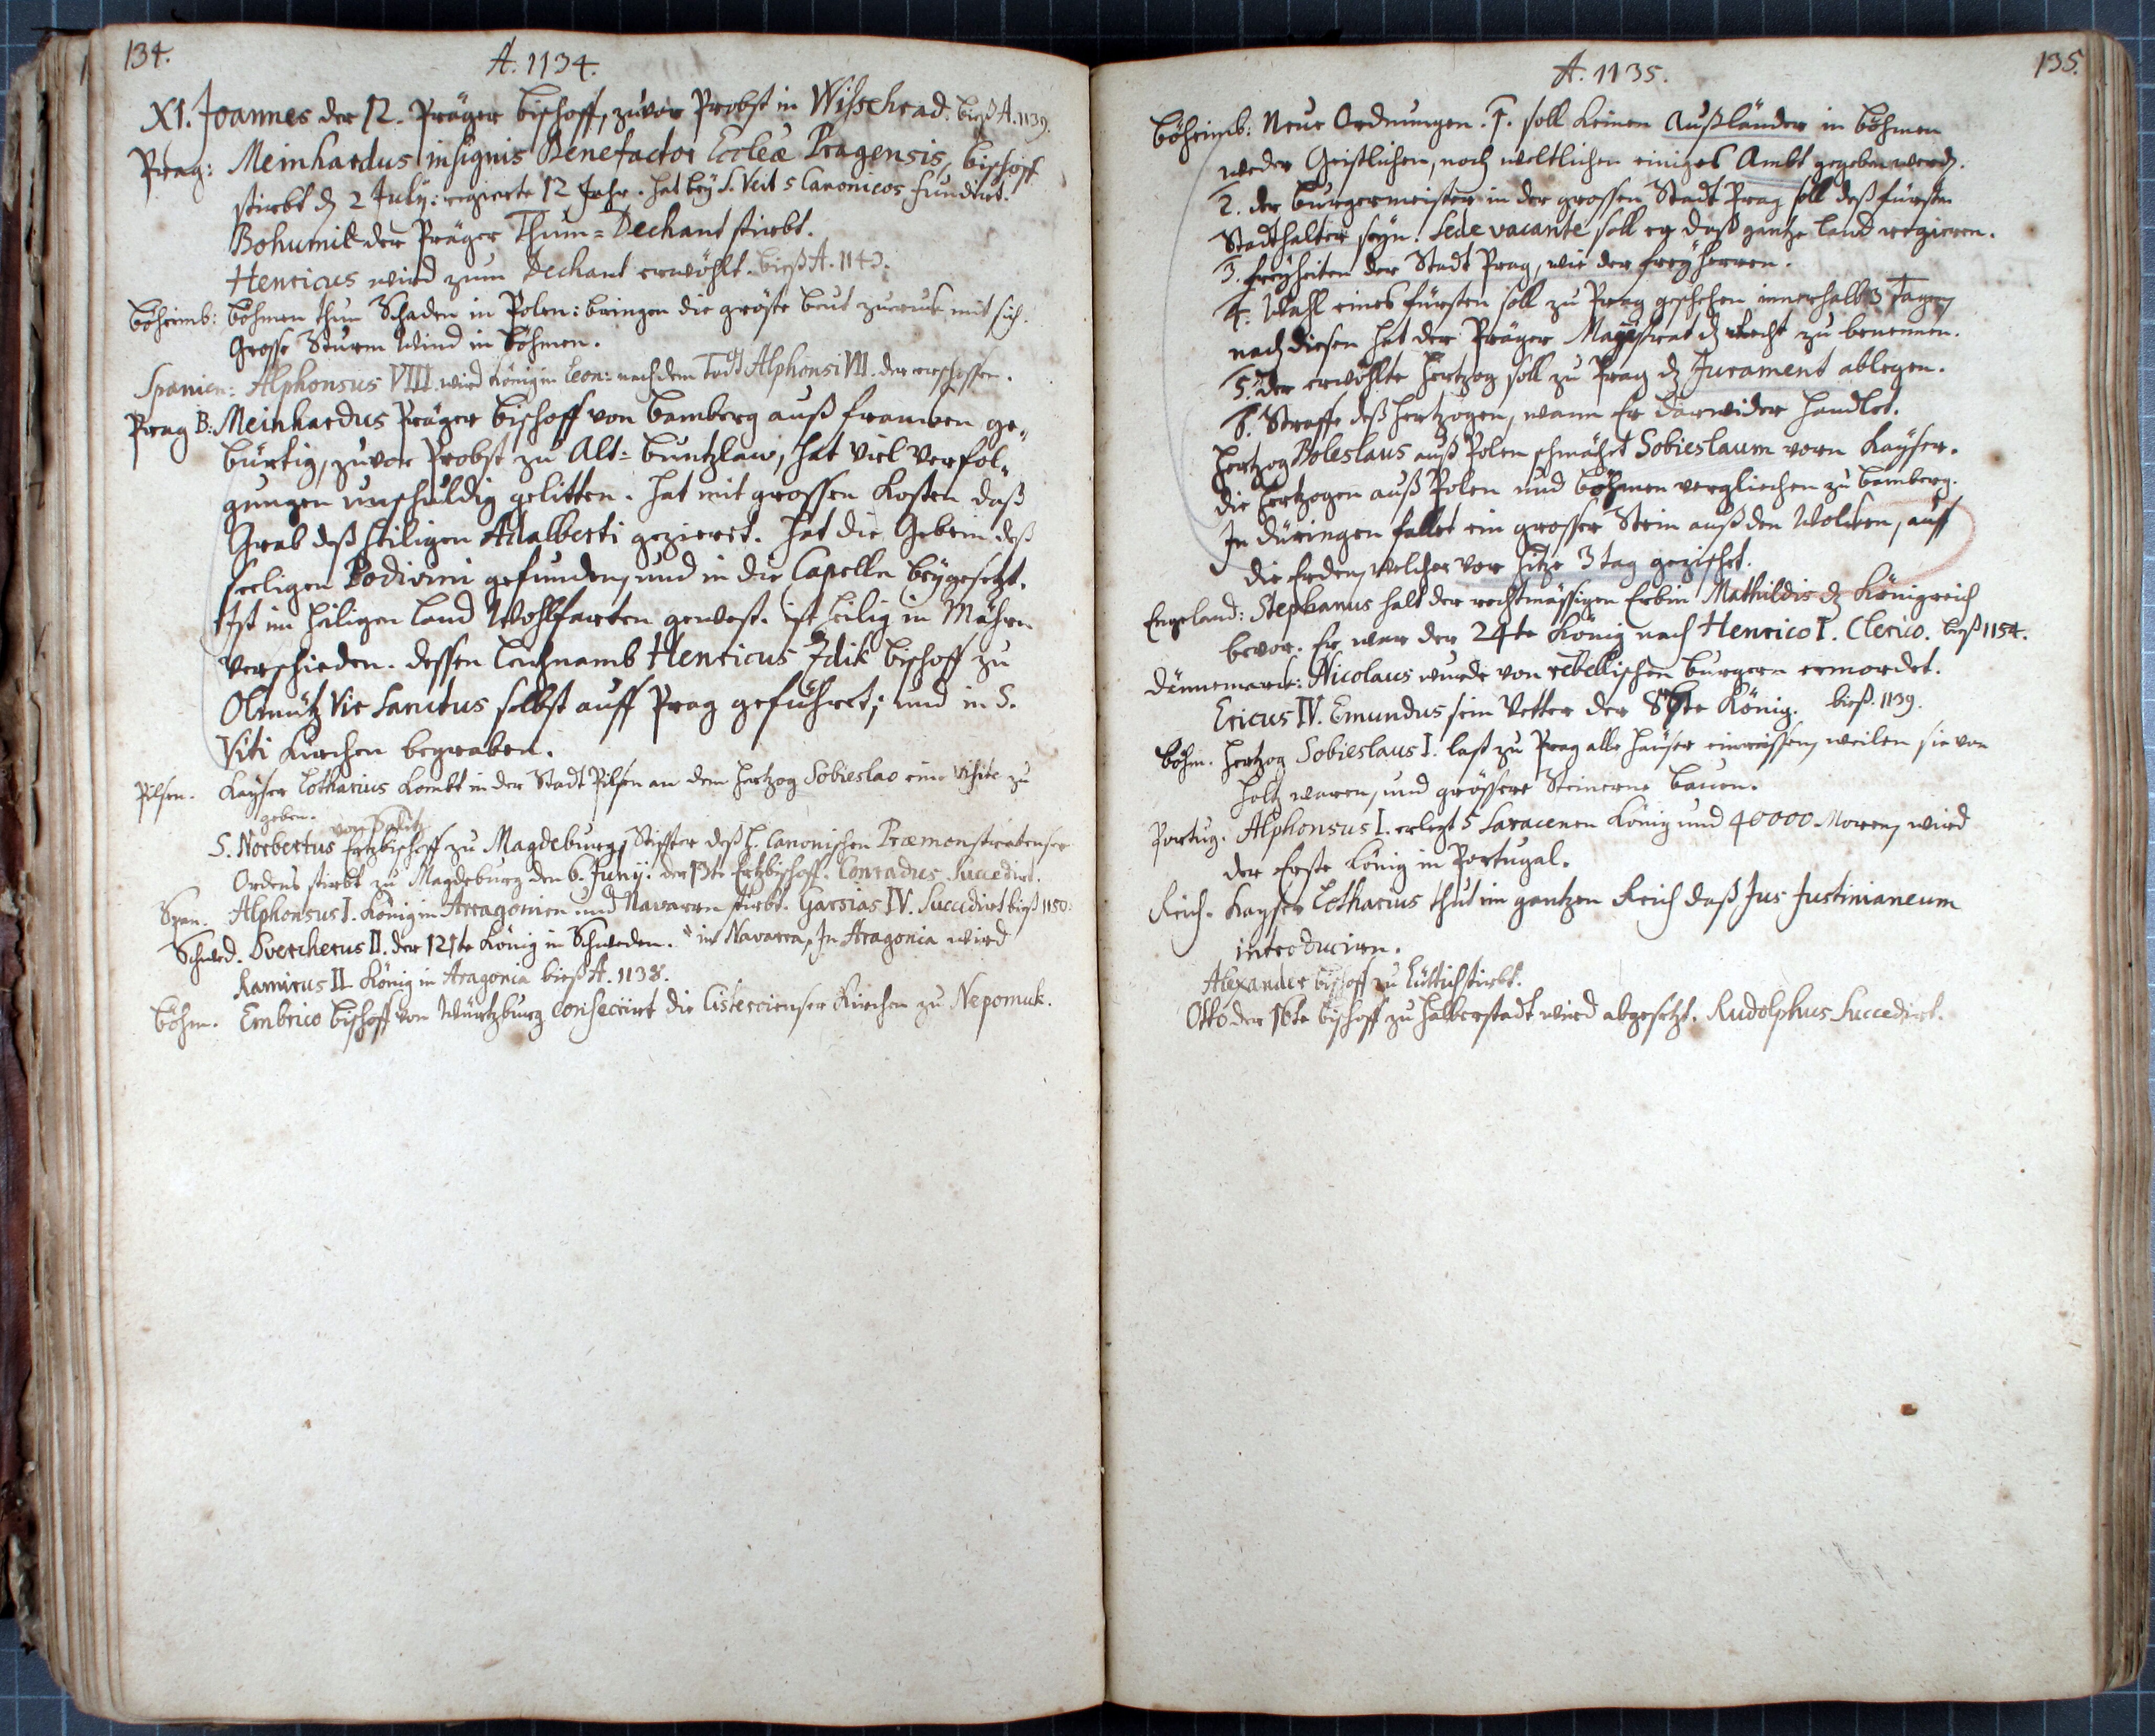 134.
A. 1134.
XI. Joannes der 12. Präger bischoff, zuvor Probst in Wissehrad. bieß A. 1139.
Prag: Meinhardus insignis Benefactor Eccleæ Pragensis, bischoff
stirbt dȝ 2 July: regierte 12 Jahr. hat bey S. Veit 5 Canonicos fundirt.
Bohumil der Präger Thum=Dechant stirbt.
Henricus wird zum Dechant erwöhlt. bieß A. 1140.
Böheimb: Böhmen thun Schaden in Polen: bringen die gröste beut zuruk mit sich.
Grosse Sturm Wind in Böhmen.
Spanien: Alphonsus VIII. wird König in Leon: nach dem Tod Alphonsi VII. der erschossen.
Prag B: Meinhardus Präger bischoff von bamberg auß francken ge„
bürtig, zuvor Probst zu Alt=Buntzlaw, hat viel Verfol„
gungen unschuldig gelitten. hat mit grossen Kosten daß
Grab deß heiligen Adalberti gezieret. hat die Gebein deß
seeligen Podivini gefunden, und in die Capelln beygesetzt.
Ist im heiligen Land Wohlfarten gewest. ist heilig in Mähren
verschieden. dessen leichnamb Henricus Zdik bischoff zu
Olmütz Vir Sanctus selbst auff Prag geführet; und in S.
Viti Kirchen begraben.
Pilsen. Kayser Lotharius kombt in der Stadt Pilsen an dem Hertzog Sobieslao eine Visite zu
geben.
S. Norbertus Ertzbischoff zu Magdeburg, Stiffter deß H. Canonischen Præmonstratenser
Ordens stirbt zu Magdeburg den 6. Juny: der 13te Ertzbischoff. Conradus Succedirt.
Span. Alphonsus I. König in Arragonien und Navarrn stirbt. Garsias IV. Succedirt bieß 1150.
Schwed. Svercherus II. der 121te König in Schweden. * in Navarra, In Aragonia wird
Ramirus II König in Aragonia bieß A. 1138.
Böhm. Embrico bischoff von Würtzburg consecrirt die Cistercienser Kirchen zu Nepomuk.
135.
A. 1135.
Böheimb: Neue Ordnungen. 1. soll keinen Außländer in Böhmen
weder Geistlichen, noch weltlichen einiges Ambt gegeben werdȝ.
2. der Burgermeister in der grossen Stadt Prag soll deß fürsten
Stadthalter seyn. Sede vacante soll er daß gantze land regieren.
3. freyheiten der Stadt Prag, wie der freyherren.
4. Wahl eines fürsten soll zu Prag geschehen innerhalb 3 Tagen
nach diesen hat der Präger Magistrat dȝ recht zu benennen.
5. der erwöhlte Hertzog soll zu Prag dȝ Jurament ablegen.
6. Straffe deß Hertzogen, wann Er darwider handlet.
Hertzog Boleslaus auß Polen schmähet Sobieslaum vorn Kayser.
die Hertzogen auß Polen und Böhmen verglichen zu bamberg.
In düringen fallet ein grosser Stein auß den Wolcken, auff
die Erden, welcher vor hitze 3 tag gezischet.
Engeland: Stephanus halt der rechtmässigen Erbin Mathildis dȝ Königreich
bevor. Er war der 24te König nach Henrico I. Clerico. bieß 1154.
Dännemarck: Nicolaus wurde von rebellischen burgern ermordet.
Ericus IV. Emundus sein Vetter der König. bieß. 1139.
Böhm. Hertzog Sobieslaus I. last zu Prag alle Häuser einreissen, weilen sie von
holtz waren, und grössere Steinerne bauen.
Portug. Alphonsus I. erlegt 5 Saracenen König und 40000 Moren, wird
der Erste König in Portugal.
Reich. Kayser Lotharius thut im gantzen Reich daß Jus Justinianeum
introduciren.
Alexander bischoff zu Lüttich stirbt.
Otto der 16te bischoff zu Halberstadt wird abgesetzt. Rudolphus Succedirt.